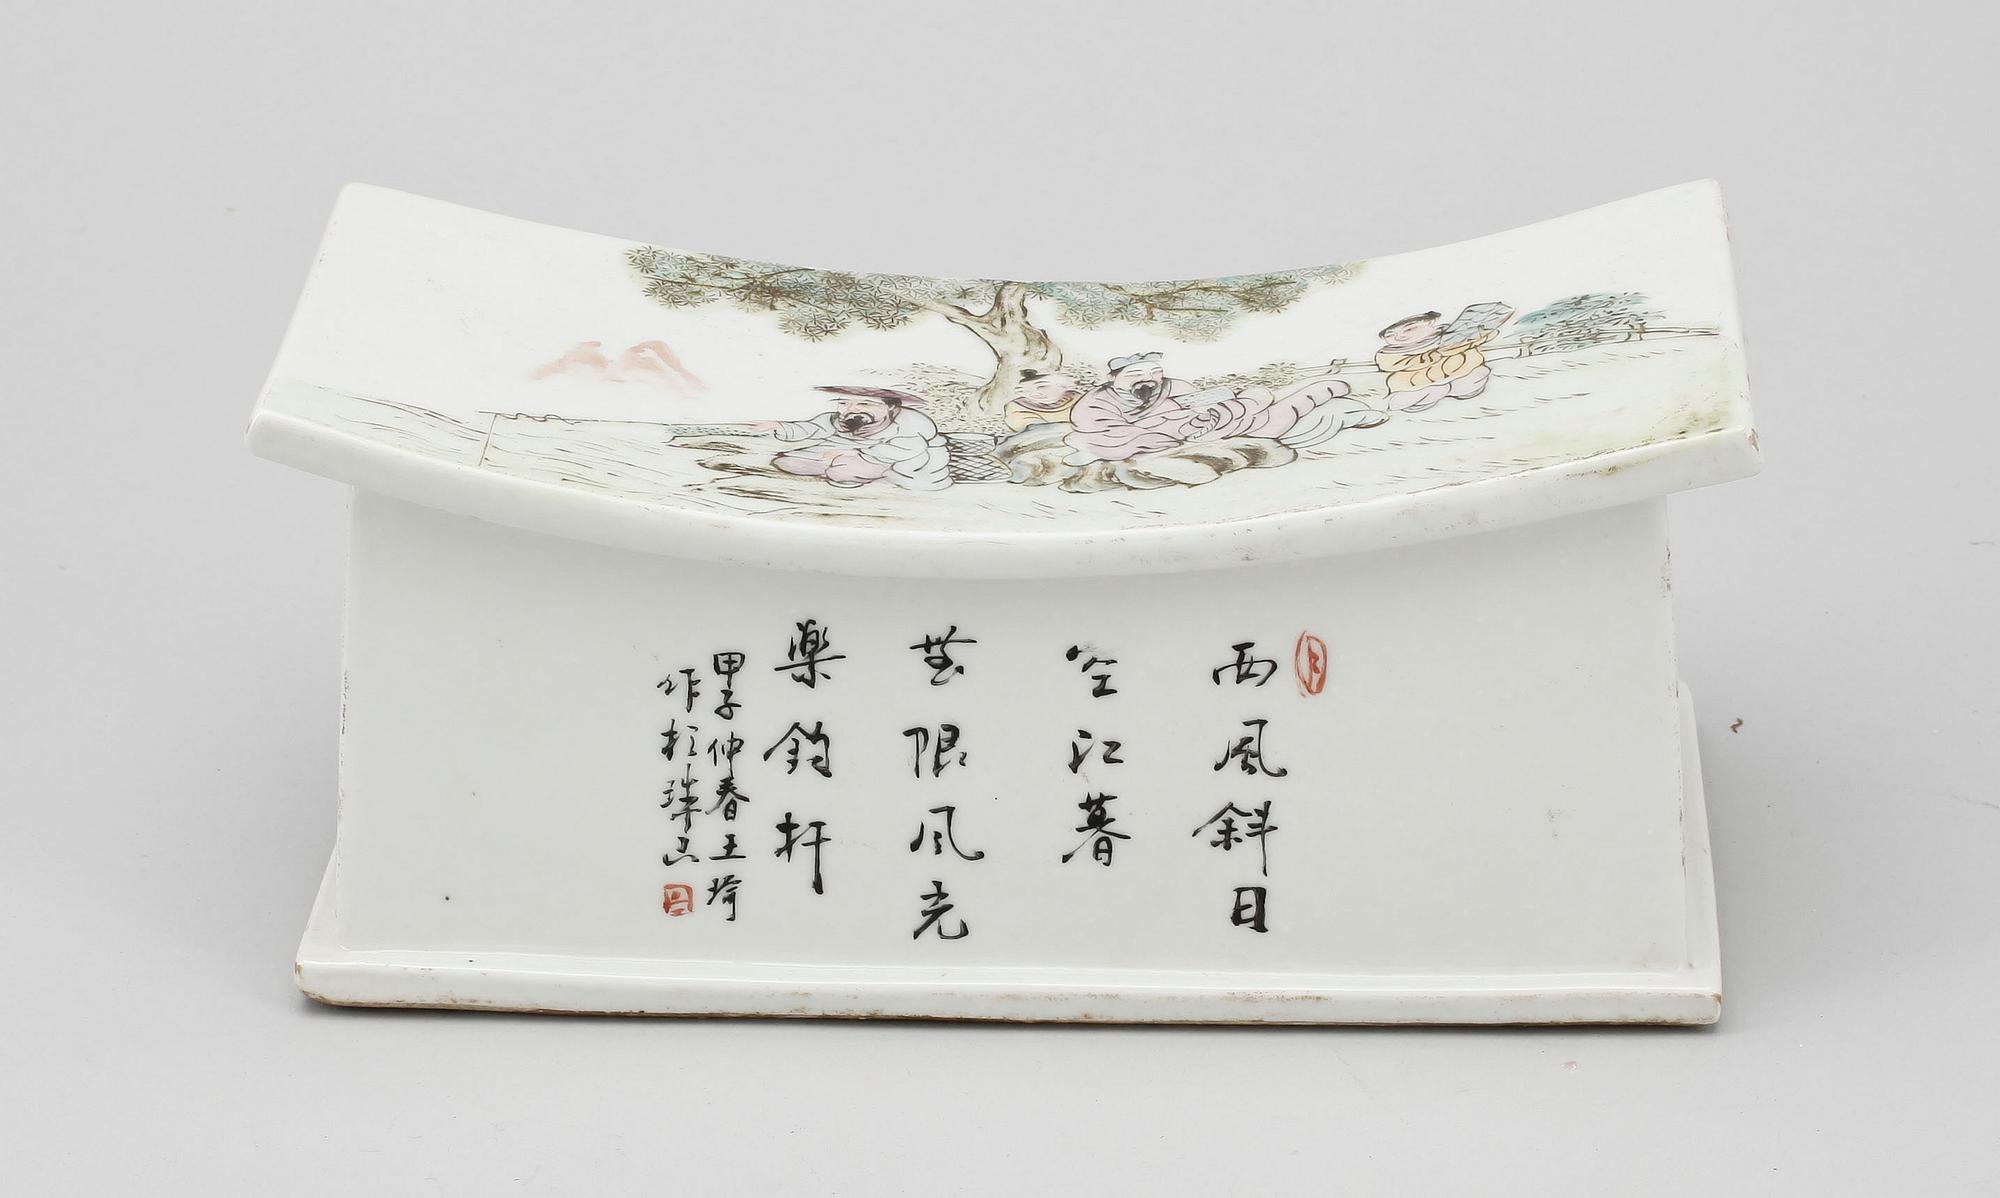 西風斜日
空江暮
無限風光
樂鈞杆
甲子仲春王琦
作於珠山